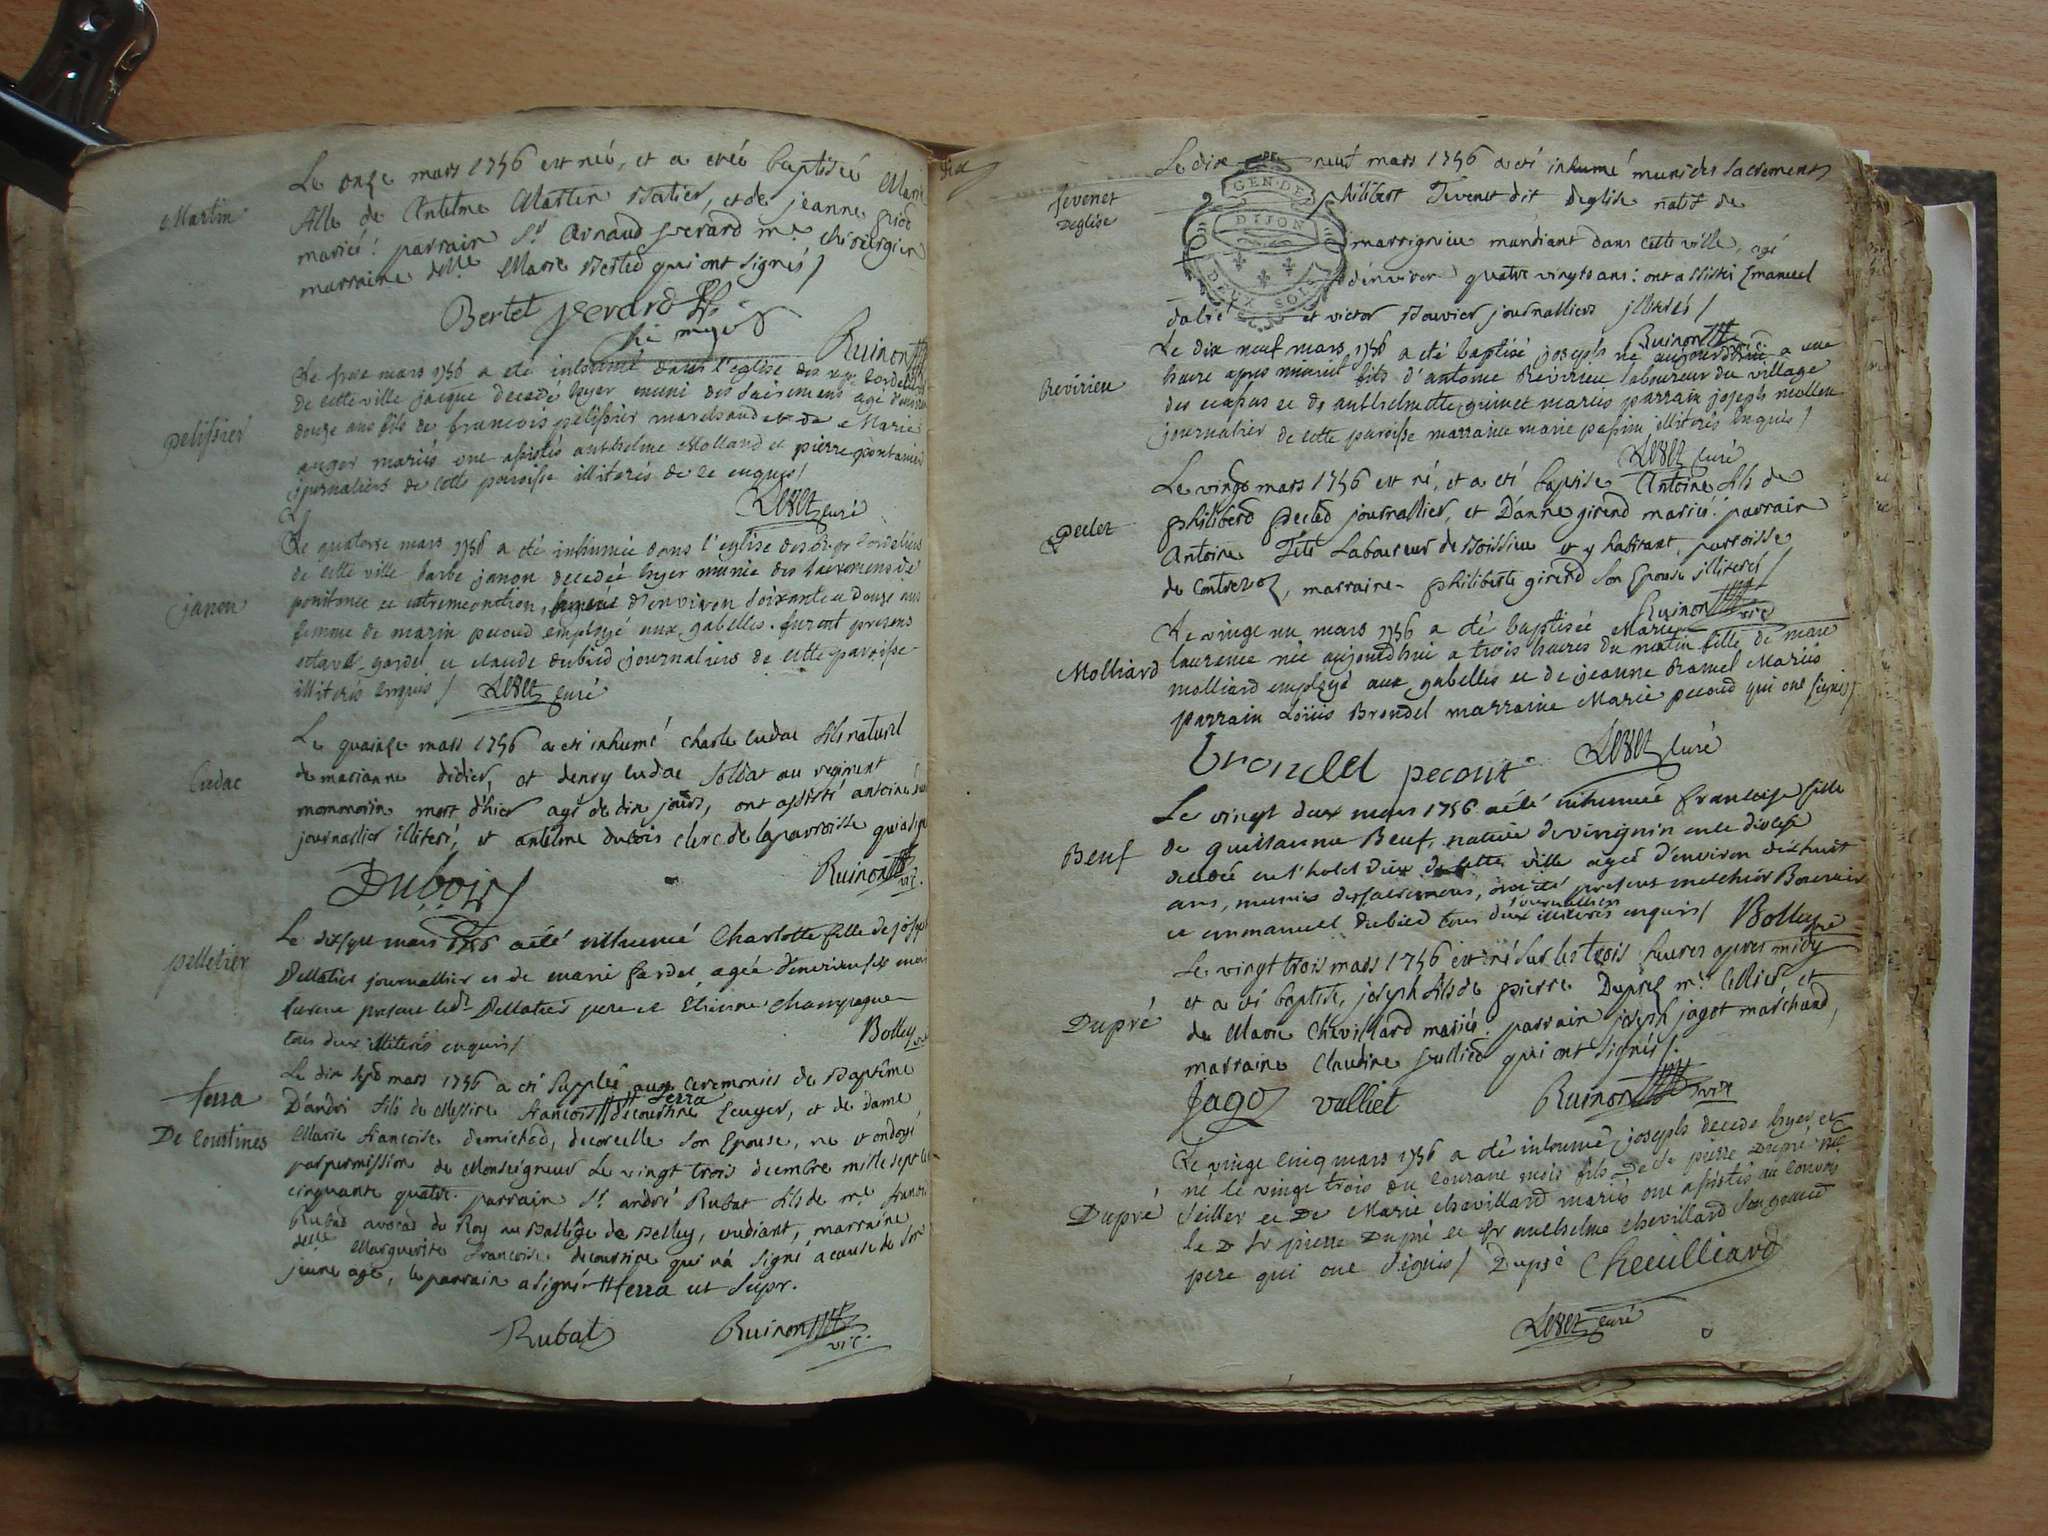 Martin
Le onze mars 1756 est née, et a étée baptisée Marie
fille de Antelme Martin Batier, et de jeanne
mariés: parrain Sr Arnaud gerard me chirurgien
marraine delle Marie Berted qui ont signés /
Bertet gerard
Ruinon
pelissier
Le treze mars 1756 a eté inhumé dans l'eglise des
de cette ville jacque decedé hyer muni des sacremens agé
douze ans fils de francois pelissier marchand et de Marie
auger mariés ont assistés anthelme Molland et pierre
journaliers de cette paroisse illiterés de ce enquis /
curé
janon
Le quatorse mars 1756 a été inhumée dans l'eglise des
de cette ville barbe janon decedée hyer munie des sacremens de
penitence et extremeonction, agée d'environ soixante et douze ans
femme de marin pecoud employé aux gabelles. furent presens
octave gardel et claude dubied journaliers de cette paroisse
illiterés enquis / curé
Cudac
Le quainze mars 1756 a eté inhumé charle cudac fils naturel
de marianne didier, et henry cudac soldat au regiment
monmorin mort d'hier agé de dix jours, ont assisté antoine
journallier illiteré, et antelme dubois clerc de la parroisse qui a signé
Dubois
Ruinon vic.
pelletier
Le dixsept mars 1756 a été inhumée Charlotte fille de joseph
Pellatier journallier et de marie fardel agée d'environ six mois
furent present led. Pellatier pere et Etienne champagne
tous deux illiterés enquis /
Bolley
ferra
De Courtines
Le dix sept mars 1756 a eté supplée aux ceremonies de Baptême
ferra
D'andré fils de Messire françois # decourtine Ecuyer, et de dame
Marie françoise demichod, decorcelle son Epouse, né et ondoyé
par permission de Monseigneur Le vingt trois decembre mille sept cent
cinquante quatre. parrain Sr andré Rubat fils de me françois
Rubat avocat du Roy au Balliage de Belley, etudiant, marraine
delle Marguerite françoise decourtine qui n'a signé a cause de son
jeune age, le parrain a signé # ferra ut supr.
Rubat
Ruinon vic.
Tevenet
Deglise
Le dix neuf mars 1756 a eté inhumé muni des sacrements
GEN. DE
DIJON
DEUX SOLS
philibert Tevenet dit deglise natif de
marrignieu mandiant dans cette ville, agé
d'environ quatre vingts ans: ont assistés Emanuel
et victor Bouvier journalliers illiterés /
Ruinon
Revirieu
Le dix neuf mars 1756 a été baptisé joseph né aujourd'hui a une
heure apres minuit fils d'antoine Revirieu laboureur du village
des ecassas et de anthelmette guinet mariés parrain joseph mollen
journalier de cette paroisse marraine marie passin illiterés enquis /
curé
peclet
Le vingt mars 1756 est né, et a eté baptisé Antoine fils de
philiberd pecled journallier, et D'anne girerd mariés: parrain
Antoine Teté Laboureur de Boissieu et y habitant, parroisse
de Contrevoz, marraine philiberte girerd son Epouse illiterés /
Ruinon vic
Molliard
Le vingt un mars 1756 a été baptisée Marie
laurence née aujourdhui a trois heures du matin fille de marc
molliard employé aux gabelles et de jeanne Bramel Mariés
parrain Loüis Brondel marraine Marie pecoud qui ont signés /
brondel pecout
curé
Beuf
Le vingt deux mars 1756 a été inhumée francoise fille
de guillaume Beuf, native de virignin en ce diocese
decedée en l'hotel dieu de cette ville agée d'environ dixhuit
ans, munie des sacremens, ont été present melchior
journalliers
et emmanuel dubied tous deux illiterés enquis / Bolley
Dupré
Le vingt trois mars 1756 est né sur les trois heures apres midy
et a eté baptisé, joseph fils de pierre Duprez me sellier et
de Marie chevillard mariés: parrain joseph jagot marchand,
marraine Claudine vullied qui ont signés /.
Jagot vulliet
Ruinon vic
Dupré
Le vingt cinq mars 1756 a été inhumé joseph decedé hyer et
né le vingt trois du courant mois fils de Sr pierre Dupré me
seiller et De Marie chevillard mariés ont assistés au convoi
le d. sr pierre Dupré et sr anthelme chevillard son grand
pere qui ont signés / Dupré Cheuilliard
curé